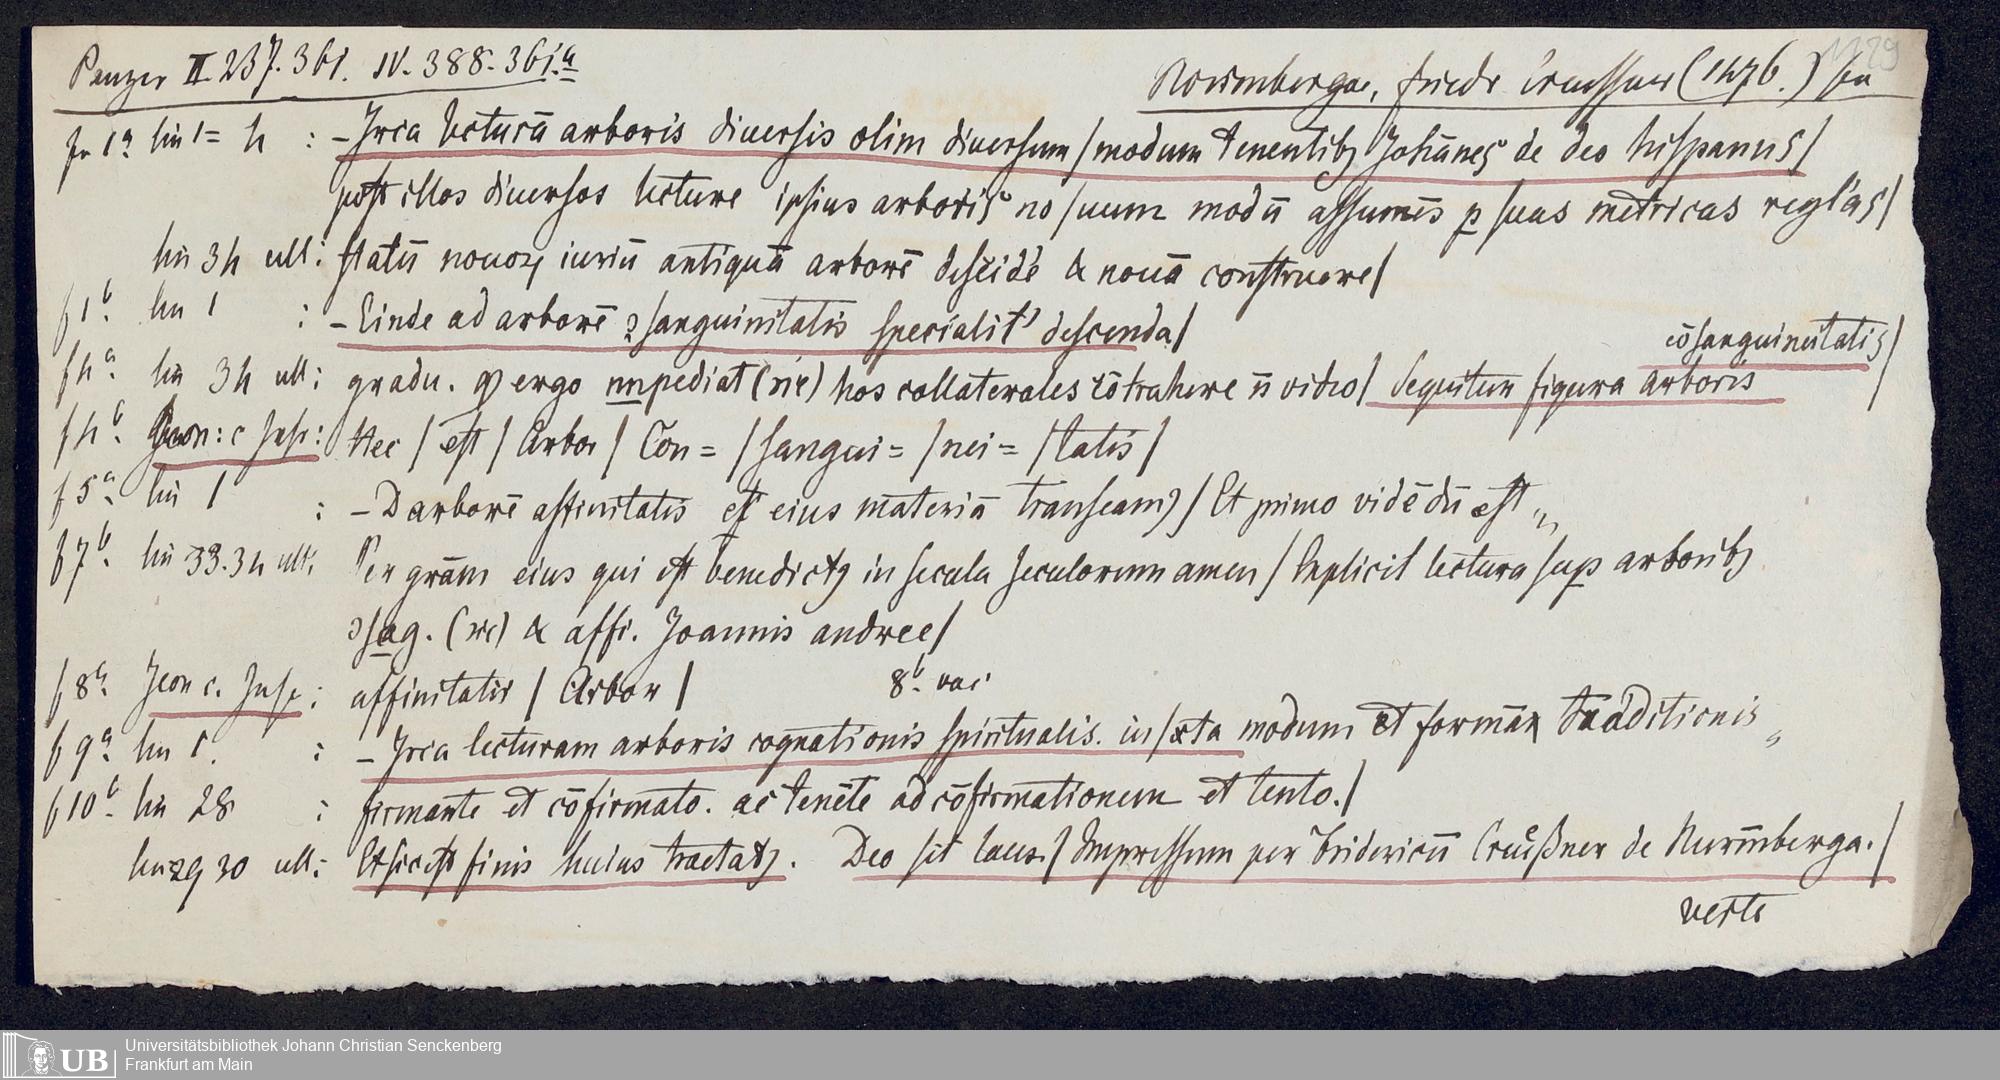 Panzer II. 237. 361. IV. 388. 361.a
Norimbergae, Friedr Creussner (1476.) fu
1129
fu 1a lin 1= 4 : –Irca lecturā arboris diuersis olim diuersum/modum tenentibꝫ Johānes de deo hispanus/
post illos diuersos lecture ipsius arboris no/uum modū assumēs p suas metricas regl'as/
lin 34 ult: statū nouoꝝ iuriū antiquā arborē descidē & nouā construere/
f 1b. lin 1 : –Einde ad arborē ꝯsanguinitatis specialit' descenda/
cōsanguineitatis/
f 4a. lin 34 ult: gradu. ergo impediat (sic) hos collaterales cōtrahere n̄ video/ Sequitur figura arboris
f 4b. Icon: c Insc: Hec / est / Arbor / Con= / sangui= / nei= / tatis /
f 5a. lin 1 : –D arborē affinitatis et eius materiā transeam/ Et primo vidēdū est „
f 7b. lin 33. 34 ult. Per grām eius qui est benedictꝫ in secula seculorum amen/ Explicit lectura sup arboribꝫ
ꝯsag. (sic) & affi. Joannis andree/
f 8a. Icon c. Insc: affinitatis / Arbor / 8b. vac
f 9a lin 1. : –Irca lecturam arboris cognationis spiritualis. iu/xta modum et formam traditionis „
f 10b. lin 28 : firmante et cōfirmato. ac tenēte ad cōfirmationem et tento./
lin 29 30 ult: Et sic est finis huius tractatꝫ. Deo sit laus./ Impressum per Fridericū Creußner de Nurmberga./
verte
Universitätsbibliothek Johann Christian Senckenberg
UB Frankfurt am Main